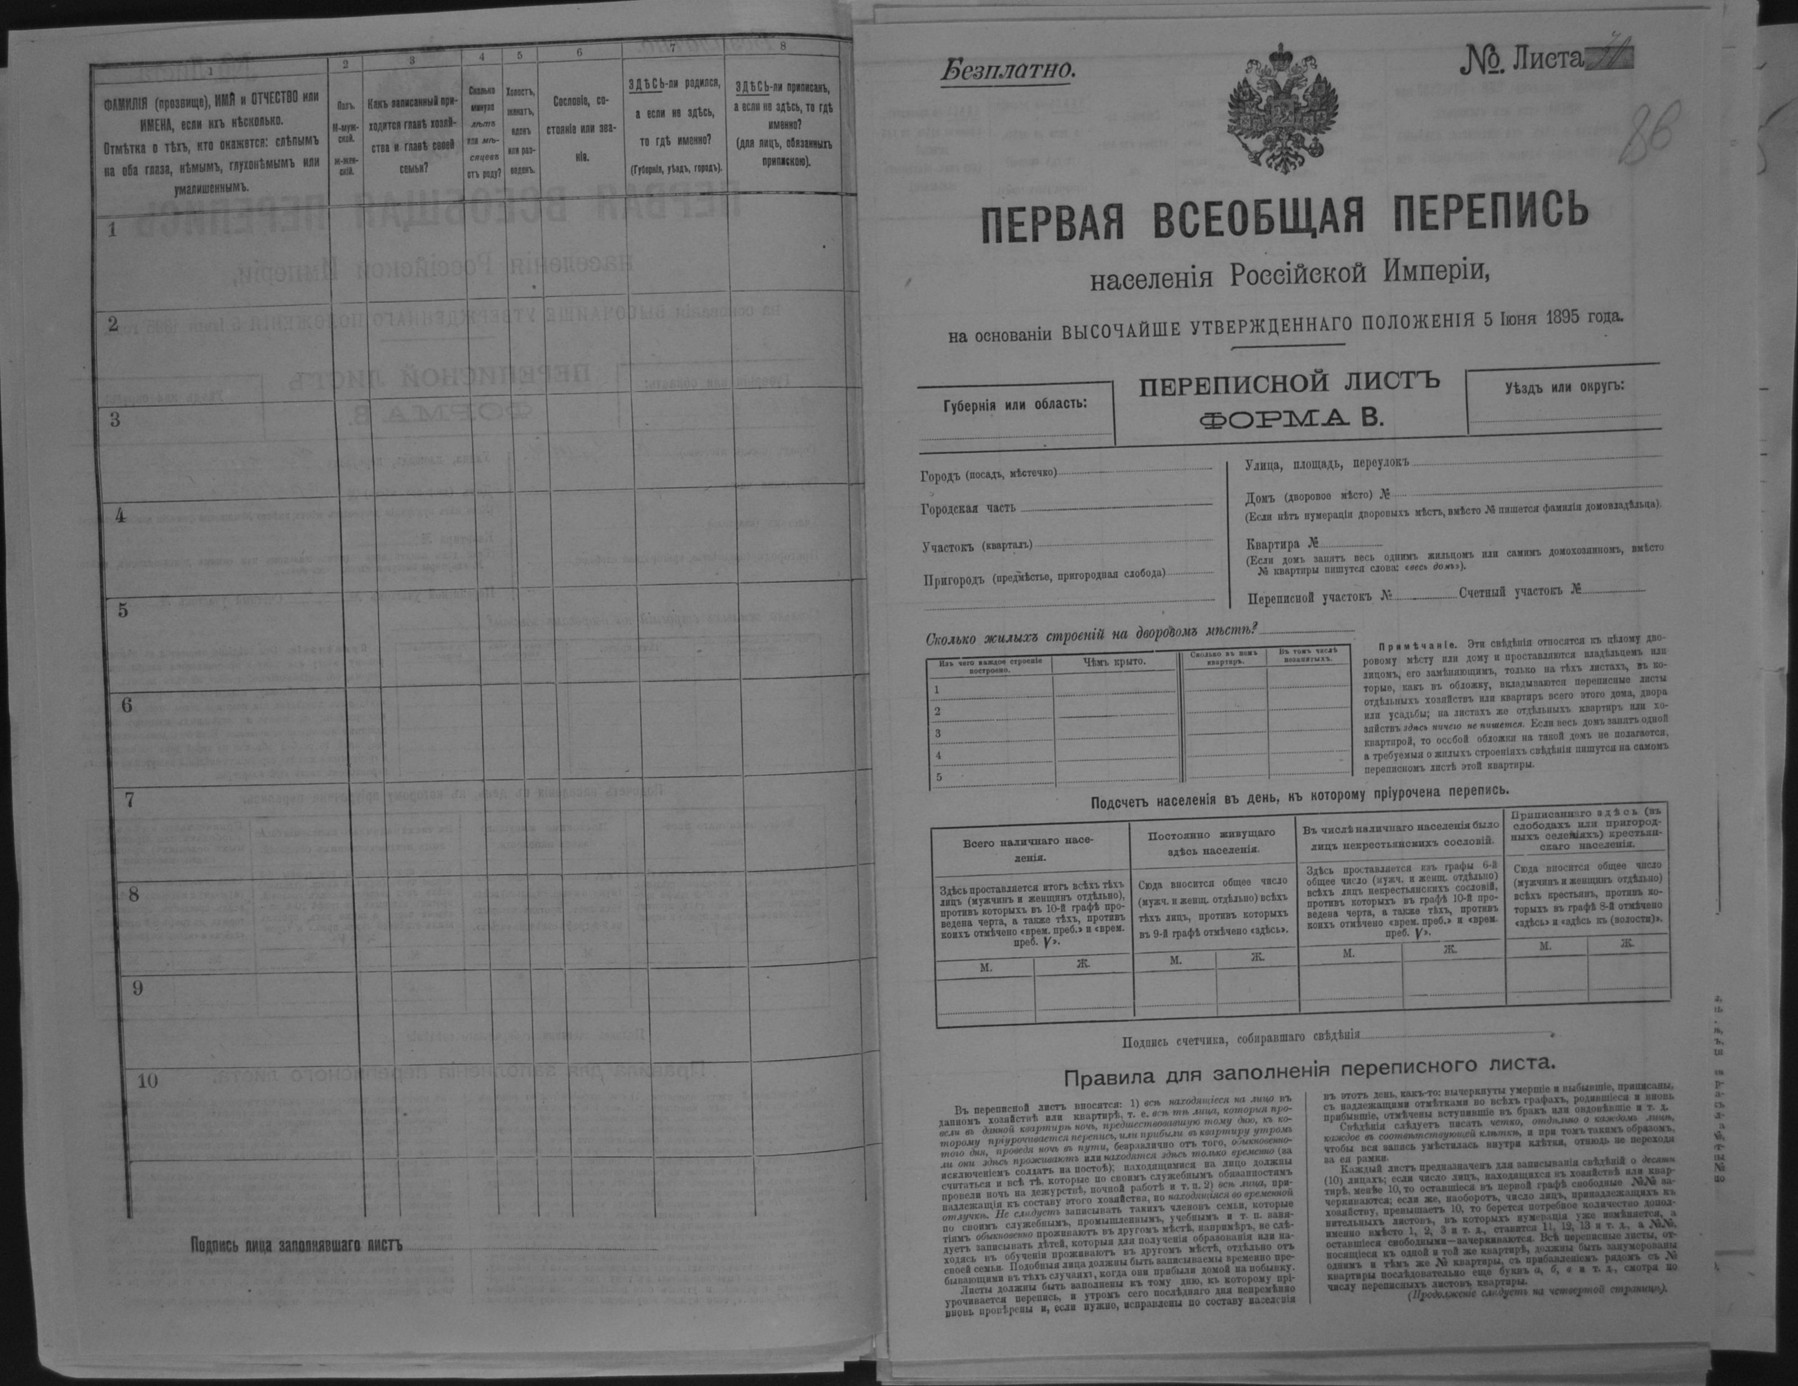 1 2 3 4 5 6 7 8
ФАМИЛІЯ (прозвище), ИМЯ и ОТЧЕСТВО или
ИМЕНА, если ихъ нѣсколько.
Отмѣтка о тѣхъ, кто окажется: слѣпымъ
на оба глаза, нѣмымъ, глухонѣмымъ или
умалишеннымъ.
Полъ.
М-муж-
ской.
ж-жен-
скій.
Какъ записанный при-
ходится главѣ хозяй-
ства и главѣ своей
семьи?
Сколько
минуло
лѣтъ
или мѣ-
сяцевъ
отъ роду?
Холостъ,
женатъ,
вдовъ
или раз-
веденъ.
Сословіе, со-
стояніе или зва-
ніе.
ЗДѢСЬ-ли родился,
а если не здѣсь,
то гдѣ именно?
(Губернія, уѣздъ, городъ).
ЗДѢСЬ-ли приписанъ,
а если не здѣсь, то гдѣ
именно?
(для лицъ, обязанныхъ
припискою).
1
2
3
4
5
6
7
8
9
10
Подпись лица заполнявшаго листъ
Безплатно.
№. Листа
86
ПЕРВАЯ ВСЕОБЩАЯ ПЕРЕПИСЬ
населенія Россійской Имперіи,
на основаніи ВЫСОЧАЙШЕ УТВЕРЖДЕННАГО ПОЛОЖЕНІЯ 5 Іюня 1895 года.
Губернія или область:
ПЕРЕПИСНОЙ ЛИСТЪ
ФОРМА В.
Уѣздъ или округъ:
Городъ (посадъ, мѣстечко)
Городская часть
Участокъ (кварталъ)
Пригородъ (предмѣстье, пригородная слобода)
Улица, площадь, переулокъ
Домъ (дворовое мѣсто) №
(Если нѣтъ нумераціи дворовыхъ мѣстъ, вмѣсто № пишется фамилія домовладѣльца).
Квартира №
(Если домъ занятъ весь однимъ жильцомъ или самимъ домохозяиномъ, вмѣсто
№ квартиры пишутся слова: «весь домъ»).
Переписной участокъ № Счетный участокъ №
Сколько жилыхъ строеній на дворовомъ мѣстѣ?
Изъ чего каждое строеніе
построено.
Чѣмъ крыто.
Сколько въ немъ
квартиръ.
Въ томъ числѣ
незанятыхъ.
1
2
3
4
5
Примѣчаніе. Эти свѣдѣнія относятся къ цѣлому дво-
ровому мѣсту или дому и проставляются владѣльцемъ или
лицомъ, его замѣняющимъ, только на тѣхъ листахъ, въ ко-
торые, какъ въ обложку, вкладываются переписные листы
отдѣльныхъ хозяйствъ или квартиръ всего этого дома, двора
или усадьбы; на листахъ же отдѣльныхъ квартиръ или хо-
зяйствъ здѣсь ничего не пишется. Если весь домъ занятъ одной
квартирой, то особой обложки на такой домъ не полагается,
а требуемыя о жилыхъ строеніяхъ свѣдѣнія пишутся на самомъ
переписномъ листѣ этой квартиры.
Подсчетъ населенія въ день, къ которому пріурочена перепись.
Всего наличнаго насе-
ленія.
Здѣсь проставляется итогъ всѣхъ тѣхъ
лицъ (мужчинъ и женщинъ отдѣльно),
противъ которыхъ въ 10-й графѣ про-
ведена черта, а также тѣхъ, противъ
коихъ отмѣчено «врем. преб.» и «врем.
преб. V».
Постоянно живущаго
здѣсь населенія.
Сюда вносится общее число
(мужч. и женщ. отдѣльно) всѣхъ
тѣхъ лицъ, противъ которыхъ
въ 9-й графѣ отмѣчено «здѣсь».
Въ числѣ наличнаго населенія было
лицъ некрестьянскихъ сословій.
Здѣсь проставляется изъ графы 6-й
общее число (мужч. и женщ. отдѣльно)
всѣхъ лицъ некрестьянскихъ сословій,
противъ которыхъ въ графѣ 10-й про-
ведена черта, а также тѣхъ, противъ
коихъ отмѣчено «врем. преб.» и «врем.
преб. V».
Приписаннаго здѣсь (въ
слободахъ или пригород-
ныхъ селеніяхъ) крестьян-
скаго населенія.
Сюда вносится общее число
(мужчинъ и женщинъ отдѣльно)
всѣхъ крестьянъ, противъ ко-
торыхъ въ графѣ 8-й отмѣчено
«здѣсь» и «здѣсь къ (волости)».
М. Ж. М. Ж. М. Ж. М. Ж.
Подпись счетчика, собиравшаго свѣдѣнія
Правила для заполненія переписного листа.
Въ переписной листъ вносятся: 1) всѣ находящіеся на лицо въ
данномъ хозяйствѣ или квартирѣ, т. е. всѣ тѣ лица, которыя про-
вели въ данной квартирѣ ночь, предшествовавшую тому дню, къ ко-
торому пріурочивается перепись, или прибыли въ квартиру утромъ
того дня, проведя ночь въ пути, безразлично отъ того, обыкновенно-
ли они здѣсь проживаютъ или находятся здѣсь только временно (за
исключеніемъ солдатъ на постоѣ); находящимися на лицо должны
считаться и всѣ тѣ, которые по своимъ служебнымъ обязанностямъ
провели ночь на дежурствѣ, ночной работѣ и т. п. 2) всѣ лица, при-
надлежащія къ составу этого хозяйства, но находящіяся во временной
отлучкѣ. Не слѣдуетъ записывать такихъ членовъ семьи, которые
по своимъ служебнымъ, промышленнымъ, учебнымъ и т. п. заня-
тіямъ обыкновенно проживаютъ въ другомъ мѣстѣ, напримѣръ, не слѣ-
дуетъ записывать дѣтей, которыя для полученія образованія или на-
ходясь въ обученіи проживаютъ въ другомъ мѣстѣ, отдѣльно отъ
своей семьи. Подобныя лица должны быть записываемы временно пре-
бывающими въ тѣхъ случаяхъ, когда они прибыли домой на побывку.
Листы должны быть заполнены къ тому дню, къ которому прі-
урочивается перепись, и утромъ сего послѣдняго дня непремѣнно
вновь провѣрены и, если нужно, исправлены по составу населенія
въ этотъ день, какъ-то: вычеркнуты умершіе и выбывшіе, приписаны,
съ надлежащими отмѣтками во всѣхъ графахъ, родившіеся и вновь
прибывшіе, отмѣчены вступившіе въ бракъ или овдовѣвшіе и т. д.
Свѣдѣнія слѣдуетъ писать четко, отдѣльно о каждомъ лицѣ,
каждое въ соотвѣтствующей клѣткѣ, и при томъ такимъ образомъ,
чтобы вся запись умѣстилась внутри клѣтки, отнюдь не переходя
за ея рамки.
Каждый листъ предназначенъ для записыванія свѣдѣній о десяти
(10) лицахъ; если число лицъ, находящихся въ хозяйствѣ или квар-
тирѣ, менѣе 10, то оставшіеся въ первой графѣ свободные №№ за-
черкиваются; если же, наоборотъ, число лицъ, принадлежащихъ къ
хозяйству, превышаетъ 10, то берется потребное количество допол-
нительныхъ листовъ, въ которыхъ нумерація уже измѣняется, а
именно вмѣсто 1, 2, 3 и т. д., ставится 11, 12, 13 и т. д., а №№,
оставшіеся свободными—зачеркиваются. Всѣ переписные листы, от-
носящіеся къ одной и той же квартирѣ, должны быть занумерованы
однимъ и тѣмъ же № квартиры, съ прибавленіемъ рядомъ съ №
квартиры послѣдовательно еще буквъ а, б, в и т. д., смотря по
числу переписныхъ листовъ квартиры.
(Продолженіе слѣдуетъ на четвертой страницѣ).